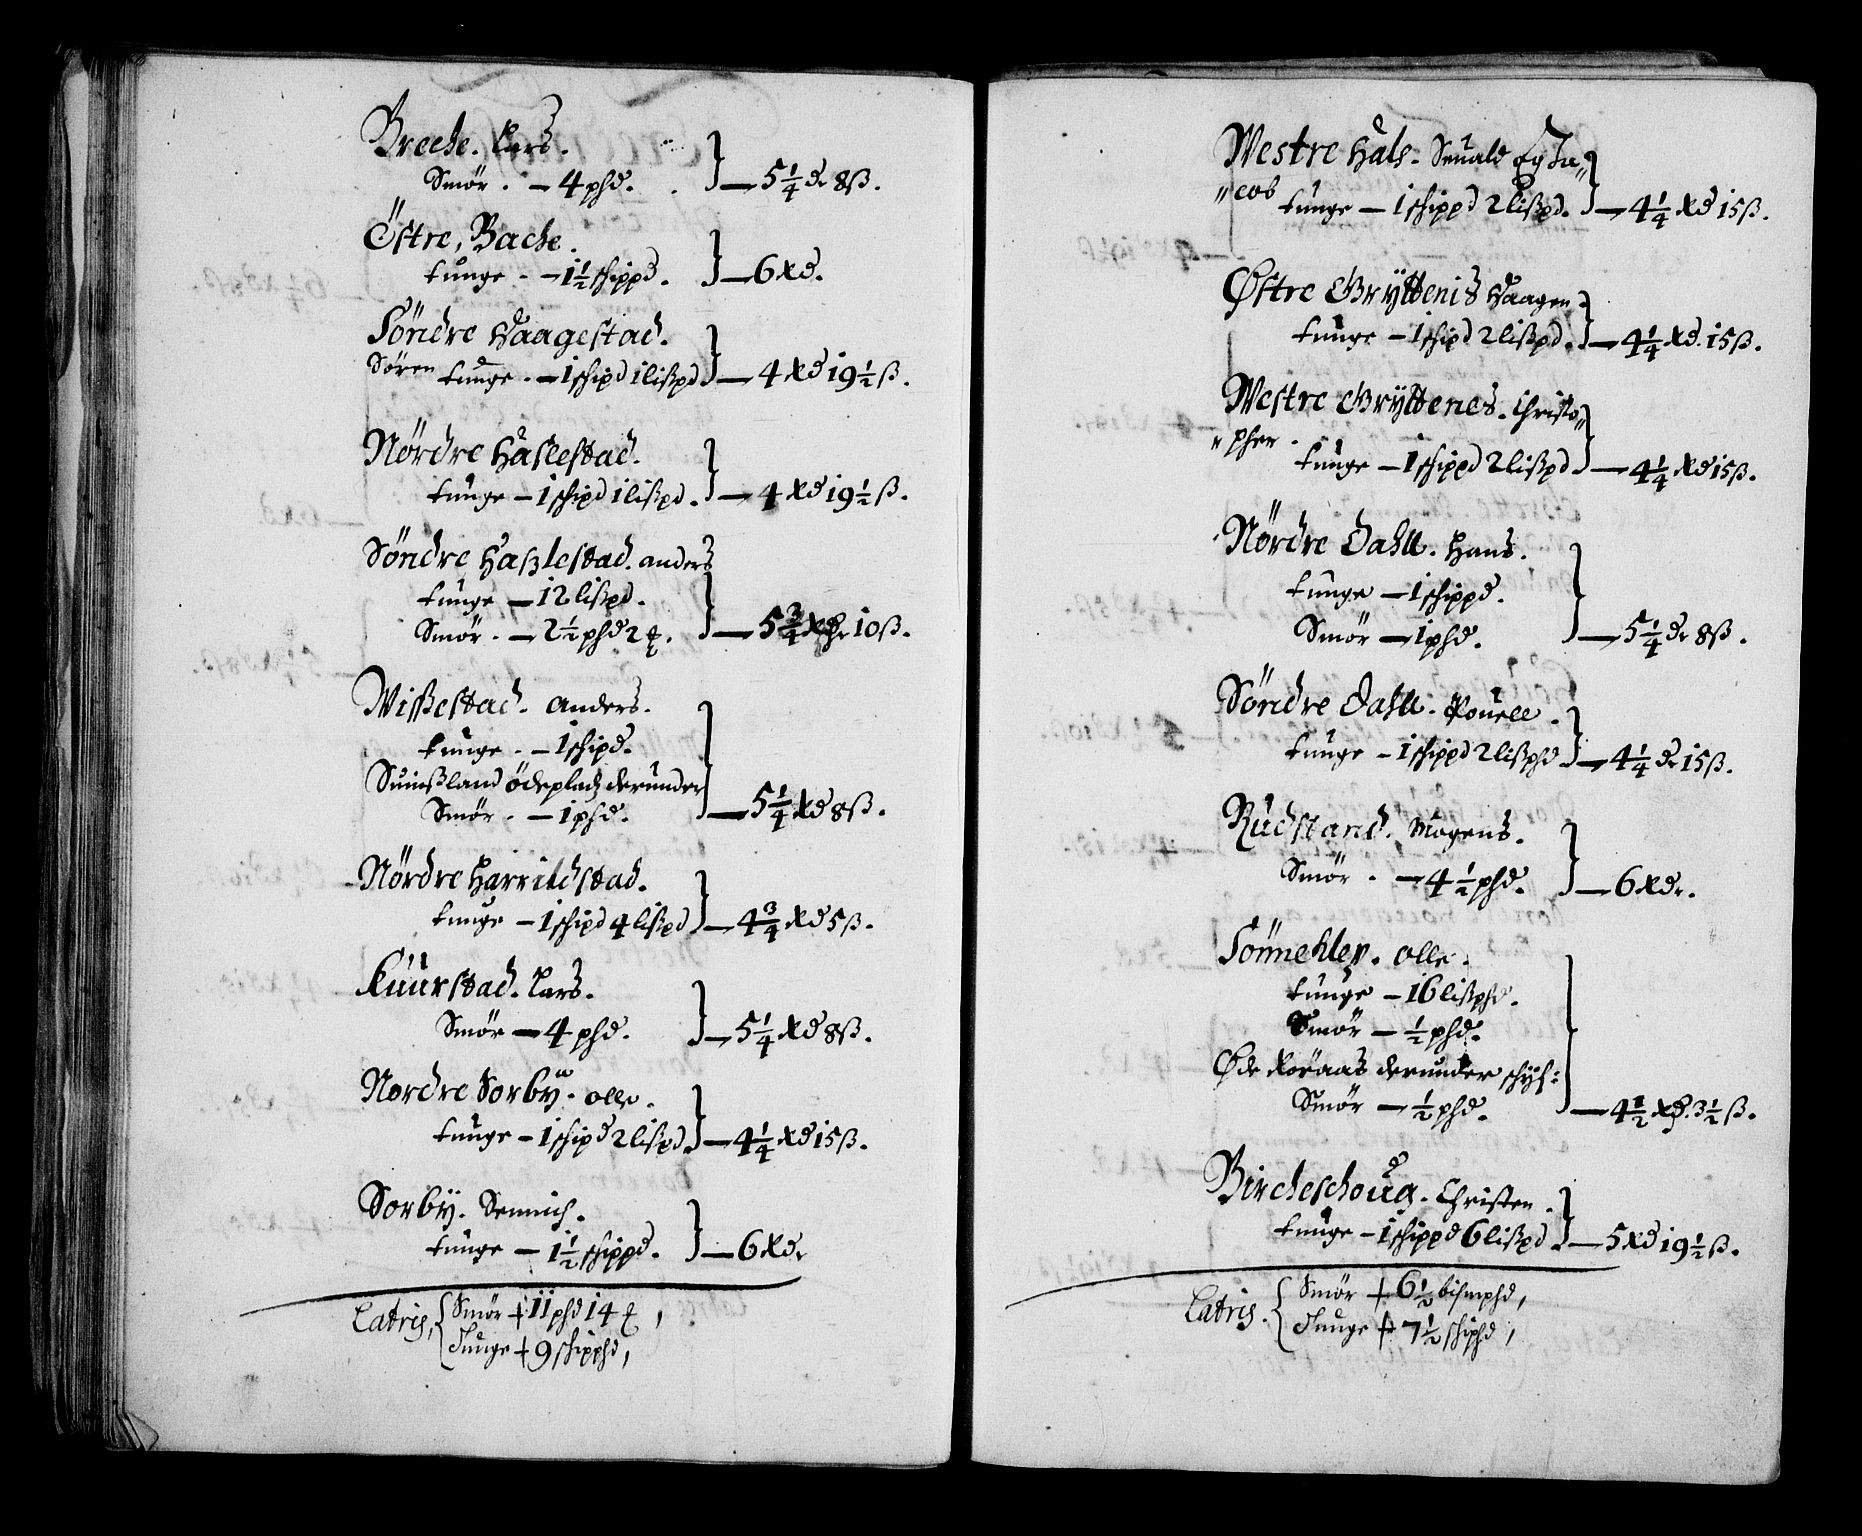 Breche. Lars.
Smör. — 4 phd. — 5 1/4 dr 8 ß.
Östre, Bache.
tunge. — 1 1/2 schippd. — 6 Rd.
Söndre Haagestad.
Sören tunge. — 1 schipd 1 lißpd — 4 Rd 19 1/2 ß.
Nördre Haslestad.
tunge — 1 schipd 1 lißpd. — 4 Rd 19 1/2 ß.
Söndre Haßlestad. anders
tunge — 12 lißpd.
Smör. — 2 1/2 phd 2 — 5 3/4 Rdr 10 ß.
Wißestad. anders.
tunge. — 1 schipd.
Suinßland ödepladz derunder
Smör. — 1 phd. — 5 1/4 Rd 8 ß.
Nördre Harrildstad.
tunge — 1 schipd 4 lißpd — 4 3/4 Rd 5 ß.
Kuurstad. Lars.
Smör — 4 phd. — 5 1/4 Rd 8 ß.
Nordre Sorbÿ. olle.
tunge — 1 schipd 2 lißpd. — 4 1/4 Rd 15 ß.
Sorbÿ. Sennich.
tunge — 1 1/2 schippd. — 6 Rdr
Latris, Smör + 11 phd 14
Tunge + 9 schipphd,
Westre Hals. Seuald Og Ja„
„cob tunge — 1 schippd 2 lißpd. — 4 1/4 Rd 15 ß.
Østre Grÿttenis Haagen.
tunge — 1 schipd 2 lißpd. — 4 1/4 Rd. 15 ß.
Westre Grÿttenes. Christo„
„pher.
tunge — 1 schippd 2 lißpd — 4 1/4 Rd 15 ß.
Nördre Dahll. Hans.
tunge — 1 schippd.
Smör — 1 phd. — 5 1/4 dr 8 ß.
Söndre Dahll. Pouell.
tunge — 1 schippd 2 lißphd — 4 1/4 dr 15 ß.
Rudstand. Mogens.
Smör. — 4 1/2 phd. — 6 Rdr.
Sönnehley. olle.
tunge — 16 lißphd.
Smör — 1/2 phd.
Øde Roraas derunder schÿl:
Smör — 1/2 phd. — 4 1/2 Rd. 3 1/2 ß.
Bircheschoug. Christen.
tunge — 1 schippd 6 lißpd. — 5 Rd 19 1/2 ß.
Latris. Smör + 6 1/2 bismphd,
Tunge + 7 1/2 schiphd,